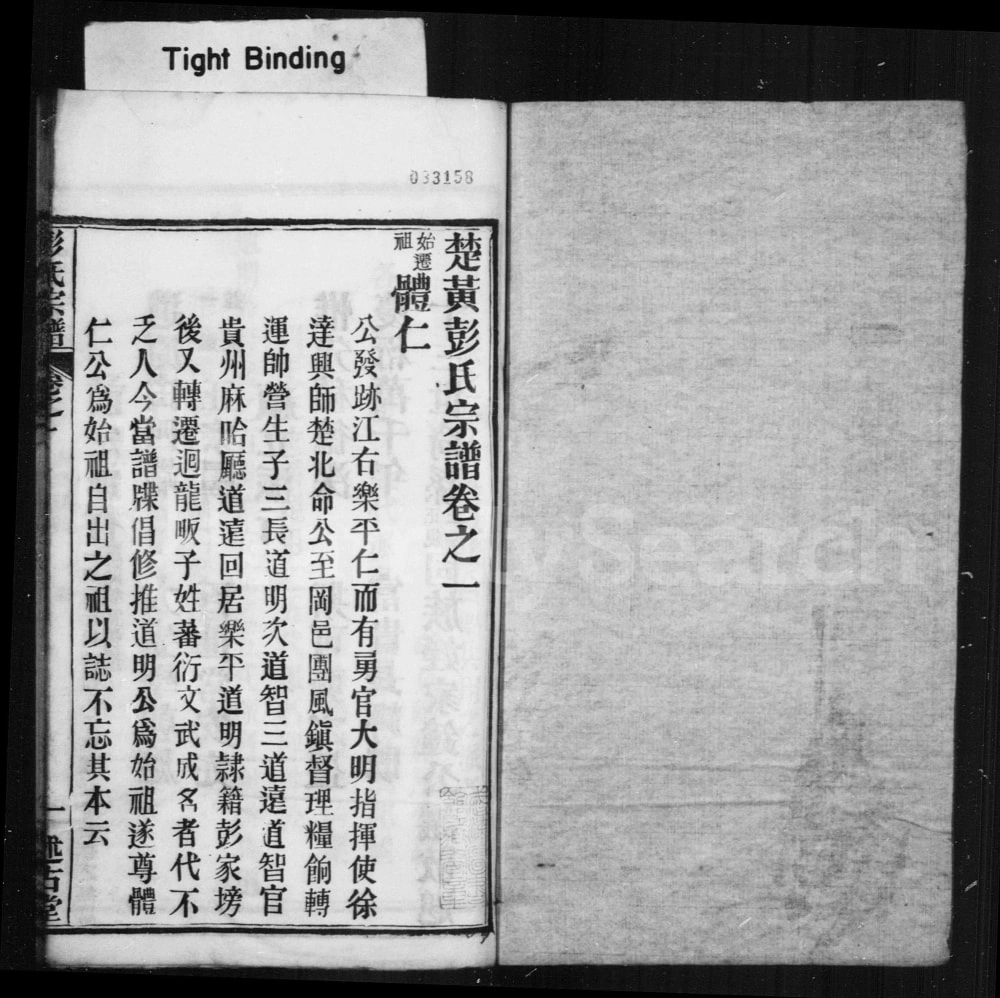 Tight Binding
033158
楚黃彭氏宗譜卷之一
始遷祖 體仁
公發跡江右樂平仁而有勇官大明指揮使徐
達興師楚北命公至岡邑團風鎭督理糧餉轉
運帥營生子三長道明次道智三道遠道智官
貴州麻哈廳道遠回居樂平道明隷籍彭家塝
後又轉遷迴龍畈子姓蕃衍文武成名者代不
乏人今當譜牒倡修推道明公爲始祖遂尊體
仁公爲始祖自出之祖以誌不忘其本云
彭氏宗譜 卷之一 一 述古堂